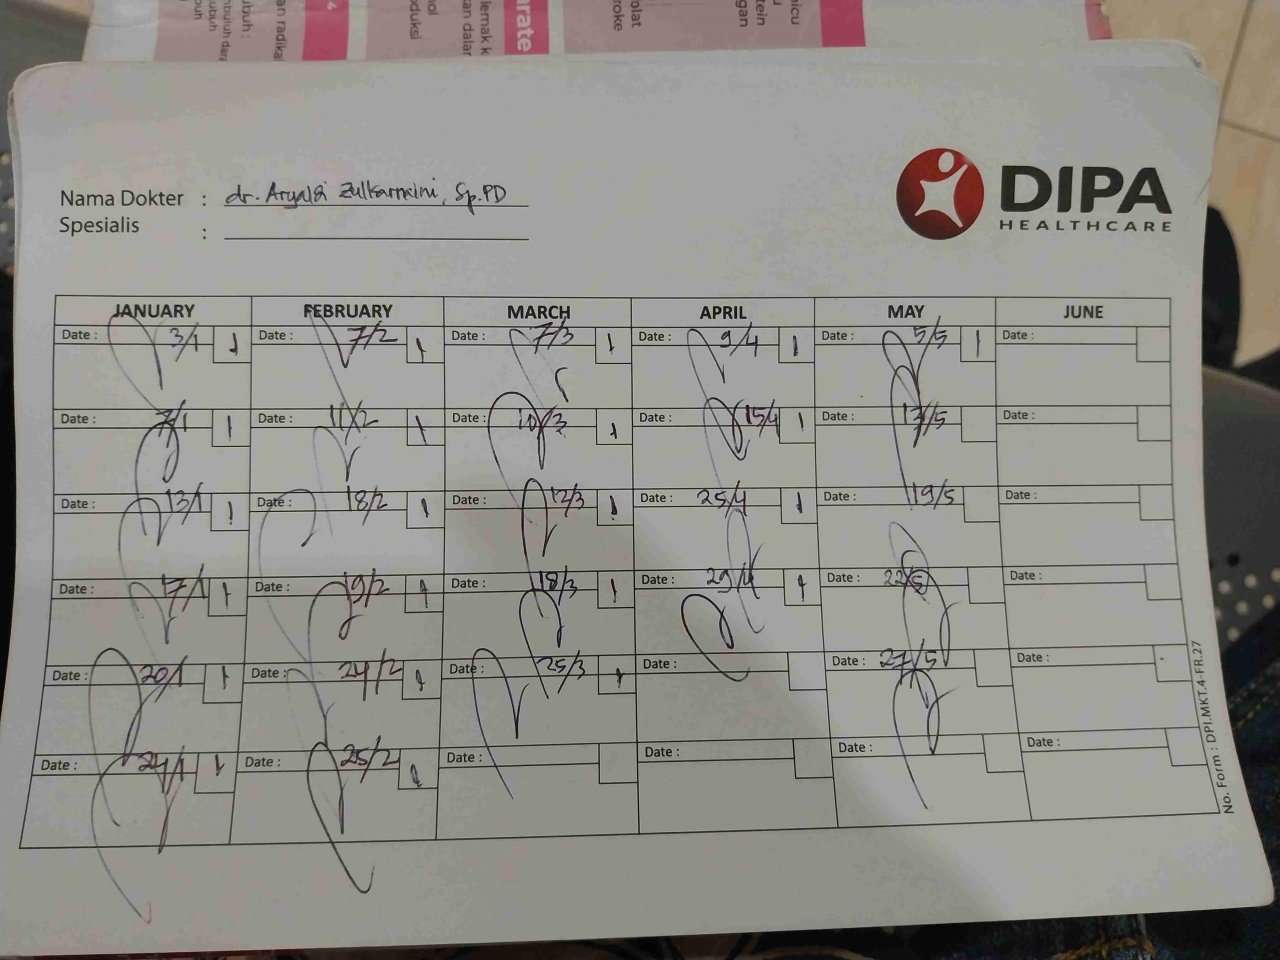 arate
Nama Dokter : dr. Aryaldi Zulkarnaini, Sp.PD
Spesialis :
DIPA
HEALTHCARE
JANUARY FEBRUARY MARCH APRIL MAY JUNE
Date : 3/1 1 Date : 7/2 1 Date : 7/3 1 Date : 9/4 1 Date : 5/5 1 Date :
Date : 7/1 1 Date : 11/2 1 Date : 10/3 1 Date : 15/4 1 Date : 17/5 Date :
Date : 13/1 1 Date : 18/2 1 Date : 12/3 1 Date : 25/4 1 Date : 19/5 Date :
Date : 17/1 1 Date : 19/2 1 Date : 18/3 1 Date : 29/4 1 Date : 22/5 Date :
Date : 20/1 1 Date : 24/2 1 Date : 25/3 1 Date : Date : 27/5 Date :
Date : 24/1 1 Date : 25/2 1 Date : Date : Date : Date :
No. Form : DPI.MKT.4-FR.27